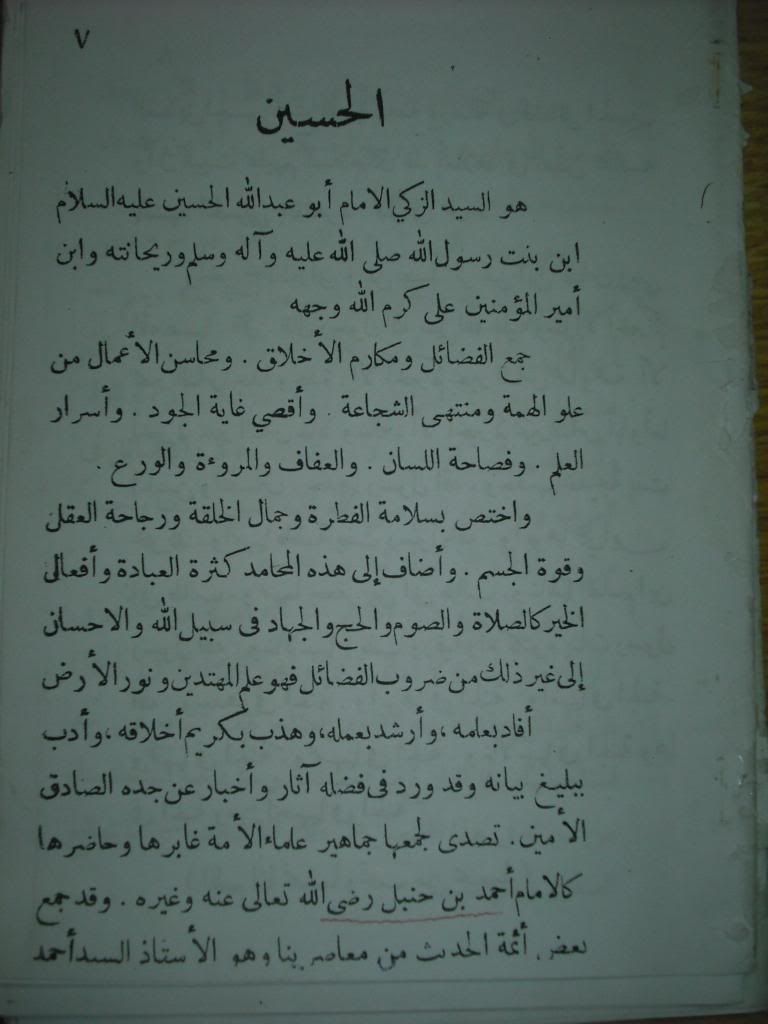 ٧
الحسين
هو السيد الزكي الامام أبو عبدالله الحسين عليه السلام
ابن بنت رسول الله صلى الله عليه وآله وسلم وريحانته وابن
أمير المؤمنين على كرم الله وجهه
جمع الفضائل ومكارم الأخلاق . ومحاسن الأعمال من
علو الهمة ومنتهى الشجاعة . وأقصي غاية الجود . وأسرار
العلم . وفصاحة اللسان . والعفاف والمروءة والورع .
واختص بسلامة الفطرة وجمال الخلقة ورجاحة العقل
وقوة الجسم . وأضاف إلى هذه المحامد كثرة العبادة وأفعال
الخير كالصلاة والصوم والحج والجهاد فى سبيل الله والاحسان
إلى غير ذلك من ضروب الفضائل فهو علم المهتدين ونور الأرض
أفاد بعلمه ، وأرشد بعمله، وهذب بكريم أخلاقه ، وأدب
ببليغ بيانه وقد ورد فى فضله آثار وأخبار عن جده الصادق
الأمين . تصدى لجمعها جماهير علماء الأمة غابرها وحاضرها
كالامام أحمد بن حنبل رضى الله تعالى عنه وغيره . وقد جمع
بعض أئمة الحدث من معاصرينا وهو الأستاذ السيد أحمد